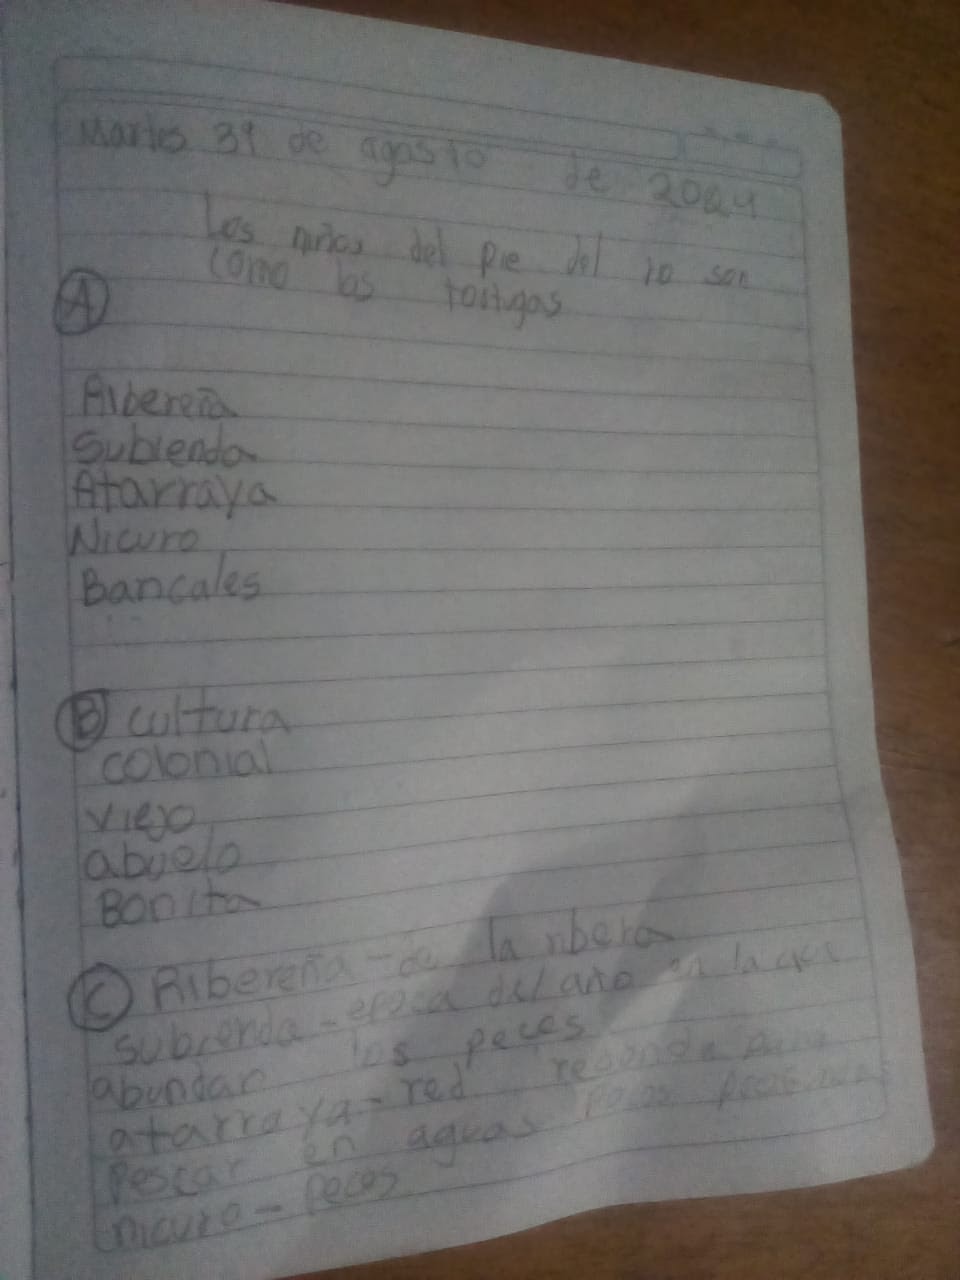 Martes 31 de agosto de 2024
Los niños del pie del rio son
como las tortugas
A
Ribereña
Subienda
Atarraya
Nicuro
Bancales
B cultura
colonial
viejo
abuelo
Bonita
C Ribereña - de la ribera
subienda - epoca del año en la que
abundan los peces
atarraya - red redonda para
pescar en aguas poco profundas
nicuro - peces